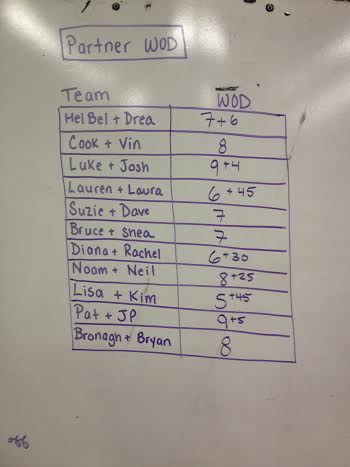 Partner WOD
Team WOD
Mel Bel + Drea 7+6
Cook + Vin 8
Luke + Josh 9+4
Lauren + Laura 6+45
Suzie + Dave 7
Bruce + Shea 7
Diana + Rachel 6+30
Noam + Neil 8+25
Lisa + Kim 5+45
Pat + JP 9+5
Bronagh + Bryan 8